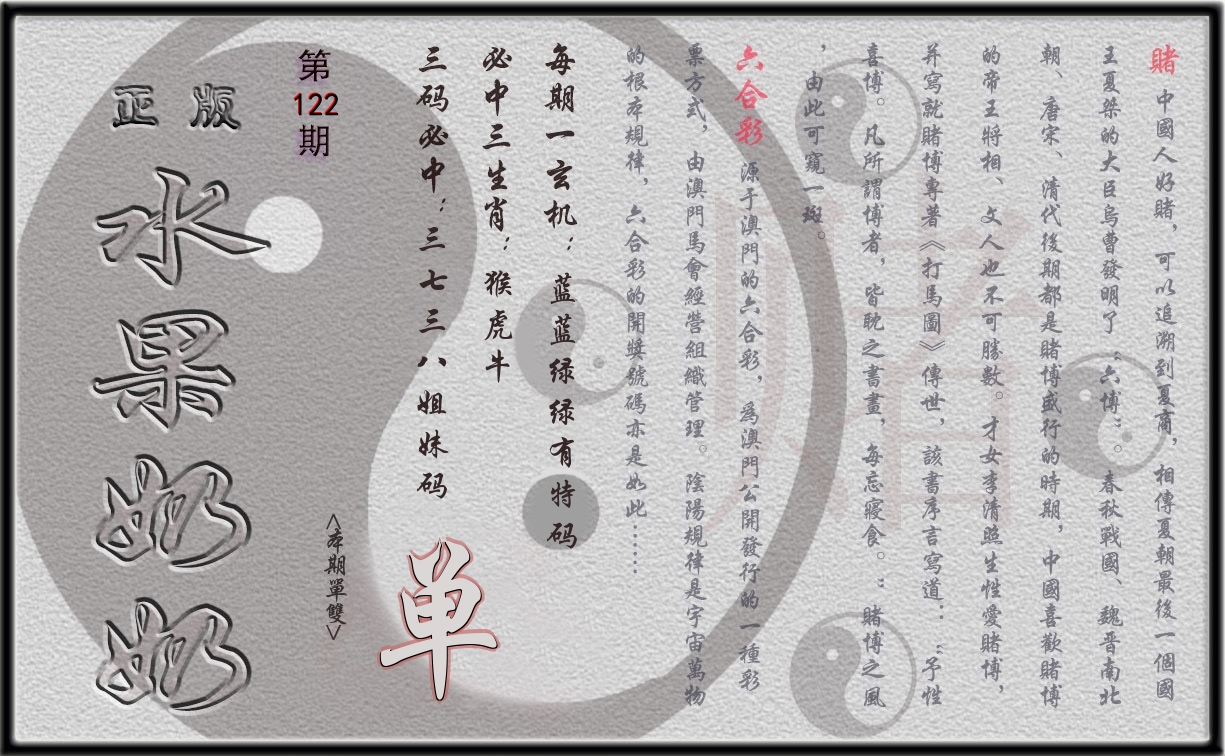 賭 中國人好賭，可以追溯到夏商，相傳夏朝最後一個國
王夏桀的大臣烏曹發明了“六博”。春秋戰國、魏晉南北
朝、唐宋、清代後期都是賭博盛行的時期，中國喜歡賭博
的帝王將相、文人也不可勝數。才女李清照生性愛賭博，
并寫就賭博專著《打馬圖》傳世，該書序言寫道：“予性
喜博。凡所謂博者，皆耽之書畫，每忘寢食。”賭博之風
，由此可窺一斑。
六合彩 源于澳門的六合彩，為澳門公開發行的一種彩
票方式，由澳門馬會經營組織管理。陰陽規律是宇宙萬物
的根本規律，六合彩的開獎號碼亦是如此……
每期一玄机：蓝蓝绿绿有特码
必中三生肖：猴虎牛
三码必中：三七三八姐妹码
单
<本期單雙>
第
122
期
正版
水果奶奶
賭